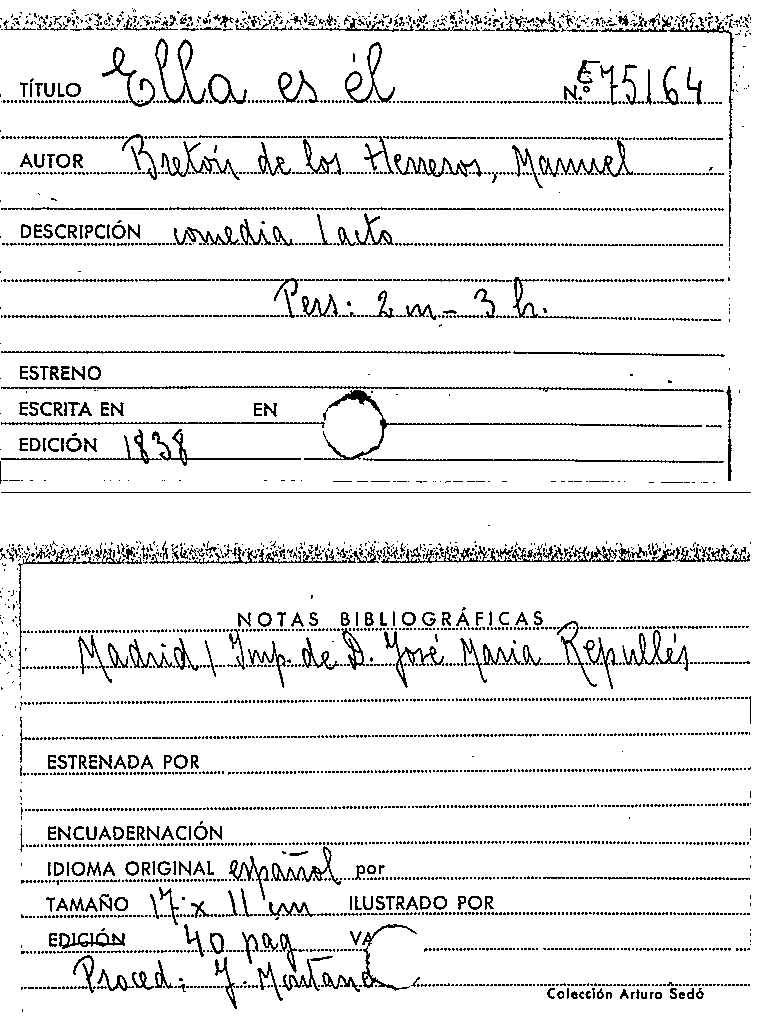 TÍTULO Ella es él N.º 75164
AUTOR Bretón de los Herreros, Manuel
DESCRIPCIÓN comedia 1 acto
Pers: 2 m - 3 h.
ESTRENO
ESCRITA EN EN
EDICIÓN 1838
NOTAS BIBLIOGRÁFICAS
Madrid / Imp. de D. José Maria Repullés
ESTRENADA POR
ENCUADERNACIÓN
IDIOMA ORIGINAL español por
TAMAÑO 17 x 11 cm ILUSTRADO POR
EDICIÓN 40 pag VA
Proced: J. Montana
Colección Arturo Sedó